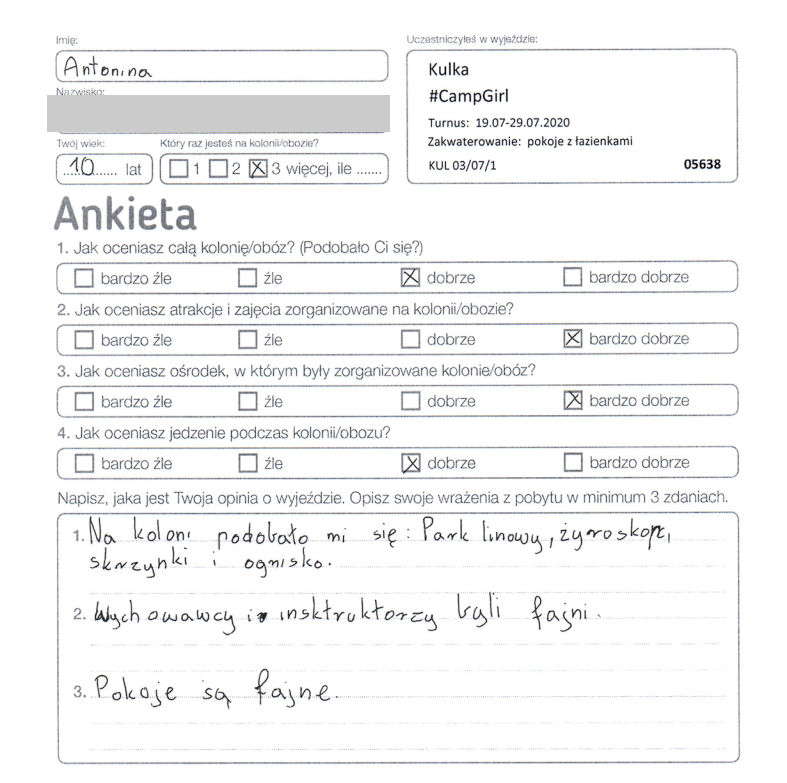 Imię:
Antonina
Nazwisko:
Twój wiek:
10 lat
Który raz jesteś na kolonii/obozie?
1 2 3 więcej, ile .......
Uczestniczyłeś w wyjeździe:
Kulka
#CampGirl
Turnus: 19.07-29.07.2020
Zakwaterowanie: pokoje z łazienkami
KUL 03/07/1 05638
Ankieta
1. Jak oceniasz całą kolonię/obóz? (Podobało Ci się?)
bardzo źle źle dobrze bardzo dobrze
2. Jak oceniasz atrakcje i zajęcia zorganizowane na kolonii/obozie?
bardzo źle źle dobrze bardzo dobrze
3. Jak oceniasz ośrodek, w którym były zorganizowane kolonie/obóz?
bardzo źle źle dobrze bardzo dobrze
4. Jak oceniasz jedzenie podczas kolonii/obozu?
bardzo źle źle dobrze bardzo dobrze
Napisz, jaka jest Twoja opinia o wyjeździe. Opisz swoje wrażenia z pobytu w minimum 3 zdaniach.
1. Na koloni podobało mi się: Park linowy, żyroskop,
skrzynki i ognisko.
2. Wychowawcy i insktruktorzy byli fajni.
3. Pokoje są fajne.